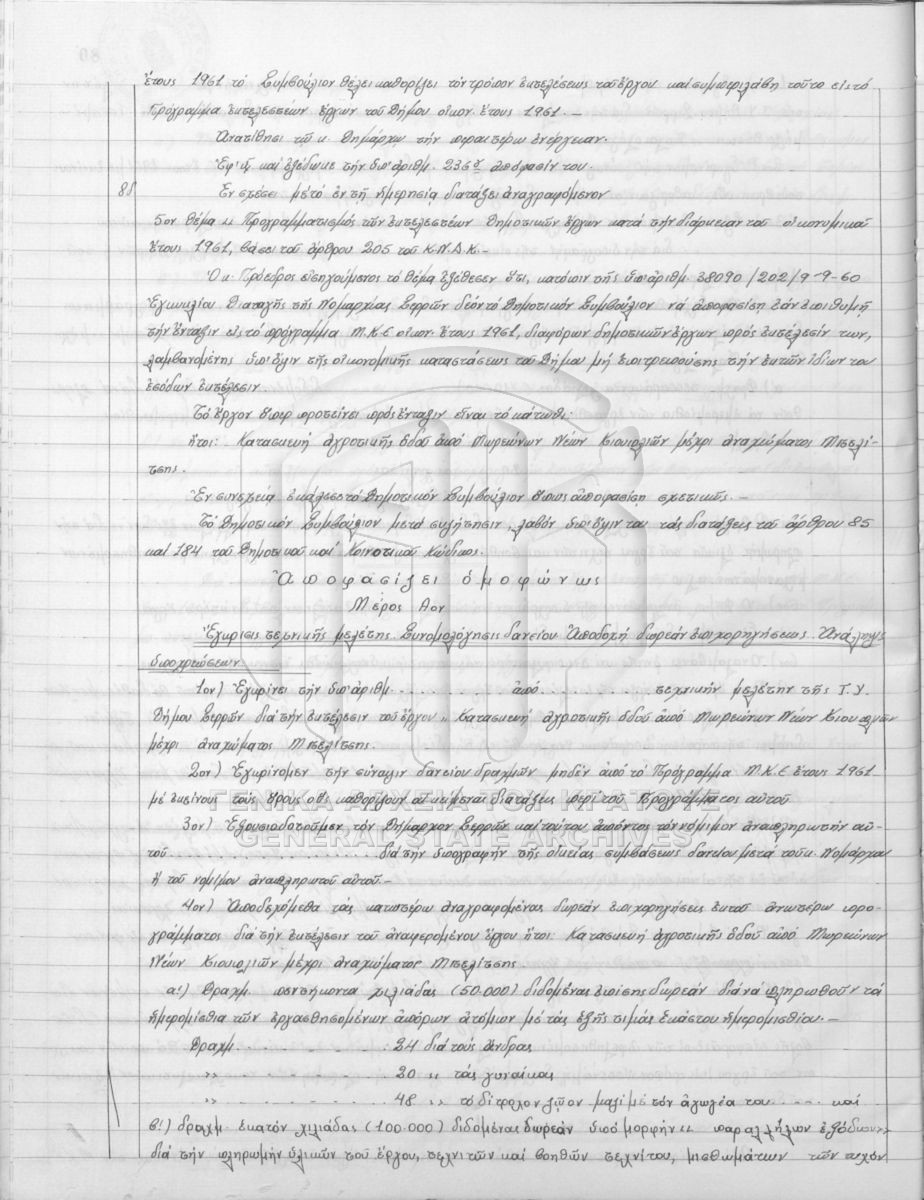 ἔτους 1961 τό Συμβούλιον θέλει καθορίσει τόν τρόπον ἐκτελέσεως τοῦ ἔργου καί συμπεριλάβη τοῦτο εἰς τό
Πρόγραμμα ἐκτελεστέων ἔργων τοῦ Δήμου οἰκον. ἔτους 1961.—
Ἀνατίθησι τῷ κ. Δημάρχῳ τήν περαιτέρω ἐνέργειαν.
Ἐφ' ᾧ καί ἐξέδωκε τήν ὑπ' ἀριθμ. 236 ἀπόφασίν του.
85 Ἐν σχέσει μέ τό ἐν τῇ ἡμερησίᾳ διατάξει ἀναγραφόμενον
5ον θέμα " Προγραμματισμός τῶν ἐκτελεστέων Δημοτικῶν ἔργων κατά τήν διάρκειαν τοῦ οἰκονομικοῦ
ἔτους 1961, βάσει τοῦ ἄρθρου 205 τοῦ Κ.Ν.Δ.Κ.—
Ὁ κ. Πρόεδρος εἰσηγούμενος τό θέμα ἐξέθεσεν ὅτι, κατόπιν τῆς ὑπ' ἀριθμ. 38090/202/9-9-60
Ἐγκυκλίου Διαταγῆς τῆς Νομαρχίας Σερρῶν δέον τό Δημοτικόν Συμβούλιον νά ἀποφασίση ἐάν ἐπιθυμῆ
τήν ἔνταξιν εἰς τό πρόγραμμα Μ.Κ.Ε οἰκον. ἔτους 1961, διαφόρων δημοτικῶν ἔργων πρός ἐκτέλεσίν των,
λαμβανομένης ὑπ' ὄψιν τῆς οἰκονομικῆς καταστάσεως τοῦ Δήμου μή ἐπιτρεπούσης τήν ἐκ τῶν ἰδίων του
ἐσόδων ἐκτέλεσιν.
Τό ἔργον ὅπερ προτείνει πρός ἔνταξιν εἶναι τό κάτωθι:
ἤτοι: Κατασκευή ἀγροτικῆς ὁδοῦ ἀπό Μωρεώνων Νέων Κιουπλιῶν μέχρι ἀναχώματος Μπελί-
τσης.
Ἐν συνεχείᾳ ἐκάλεσε τό Δημοτικόν Συμβούλιον ὅπως ἀποφασίση σχετικῶς.—
Τό Δημοτικόν Συμβούλιον μετά συζήτησιν, λαβόν ὑπ' ὄψιν του τάς διατάξεις τοῦ ἄρθρου 85
καί 184 τοῦ Δημοτικοῦ καί Κοινοτικοῦ Κώδικος.
Ἀποφασίζει ὁμοφώνως
Μέρος Αον
Ἔγκρισις τεχνικῆς μελέτης. Συνομολόγησις δανείου. Ἀποδοχή δωρεάν ἐπιχορηγήσεως. Ἀνάληψις
ὑποχρεώσεων
1ον) Ἐγκρίνει τήν ὑπ' ἀριθμ. . . . . . . . . ἀπό . . . . . . . . . τεχνικήν μελέτην τῆς Τ.Υ.
Δήμου Σερρῶν διά τήν ἐκτέλεσιν τοῦ ἔργου " Κατασκευή ἀγροτικῆς ὁδοῦ ἀπό Μωρεώνων Νέων Κιουπλιῶν
μέχρι ἀναχώματος Μπελίτσης.
2ον) Ἐγκρίνομεν τήν σύναψιν δανείου δραχμῶν μηδέν ἀπό τό Πρόγραμμα Μ.Κ.Ε ἔτους 1961
μέ ἐκείνους τούς ὅρους οὕς καθορίζουν αἱ κείμεναι διατάξεις περί τοῦ Προγράμματος αὐτοῦ
ΓΕΝΙΚΑ ΑΡΧΕΙΑ ΤΟΥ ΚΡΑΤΟΥΣ
3ον) Ἐξουσιοδοτοῦμεν τόν Δήμαρχον Σερρῶν καί τούτου ἀπόντος τόν νόμιμον ἀναπληρωτήν αὐ-
GENERAL STATE ARCHIVES
τοῦ . . . . . . . . . . . . . . διά τήν ὑπογραφήν τῆς οἰκείας συμβάσεως δανείου μετά τοῦ κ. Νομάρχου
ἤ τοῦ νομίμου ἀναπληρωτοῦ αὐτοῦ.—
4ον) Ἀποδεχόμεθα τάς κατωτέρω ἀναγραφομένας δωρεάν ἐπιχορηγήσεις ἐκ τοῦ ἀνωτέρω προ-
γράμματος διά τήν ἐκτέλεσιν τοῦ ἀναφερομένου ἔργου ἤτοι: Κατασκευή ἀγροτικῆς ὁδοῦ ἀπό Μωρεώνων
Νέων Κιουπλιῶν μέχρι ἀναχώματος Μπελίτσης
α!) Δραχμ. πεντήκοντα χιλιάδας (50.000) διδομένας ἐπίσης δωρεάν διά νά πληρωθοῦν τά
ἡμερομίσθια τῶν ἐργασθησομένων ἀπόρων ἀτόμων μέ τάς ἑξῆς τιμάς ἑκάστου ἡμερομισθίου.—
Δραχμ. . . . . . . . . . . 24 διά τούς ἄνδρας
" . . . . . . . . . . 20 " τάς γυναίκας
" . . . . . . . . . . 48 " τό δίτροχον ζῷον μαζί μέ τόν ἀγωγέα του ..... καί
β!) δραχμ. ἑκατόν χιλιάδας (100.000) διδομένας δωρεάν ὑπό μορφήν " παραλλήλων ἐξόδων "
διά τήν πληρωμήν ὑλικῶν τοῦ ἔργου, τεχνιτῶν καί βοηθῶν τεχνίτου, μισθωμάτων τῶν τυχόν